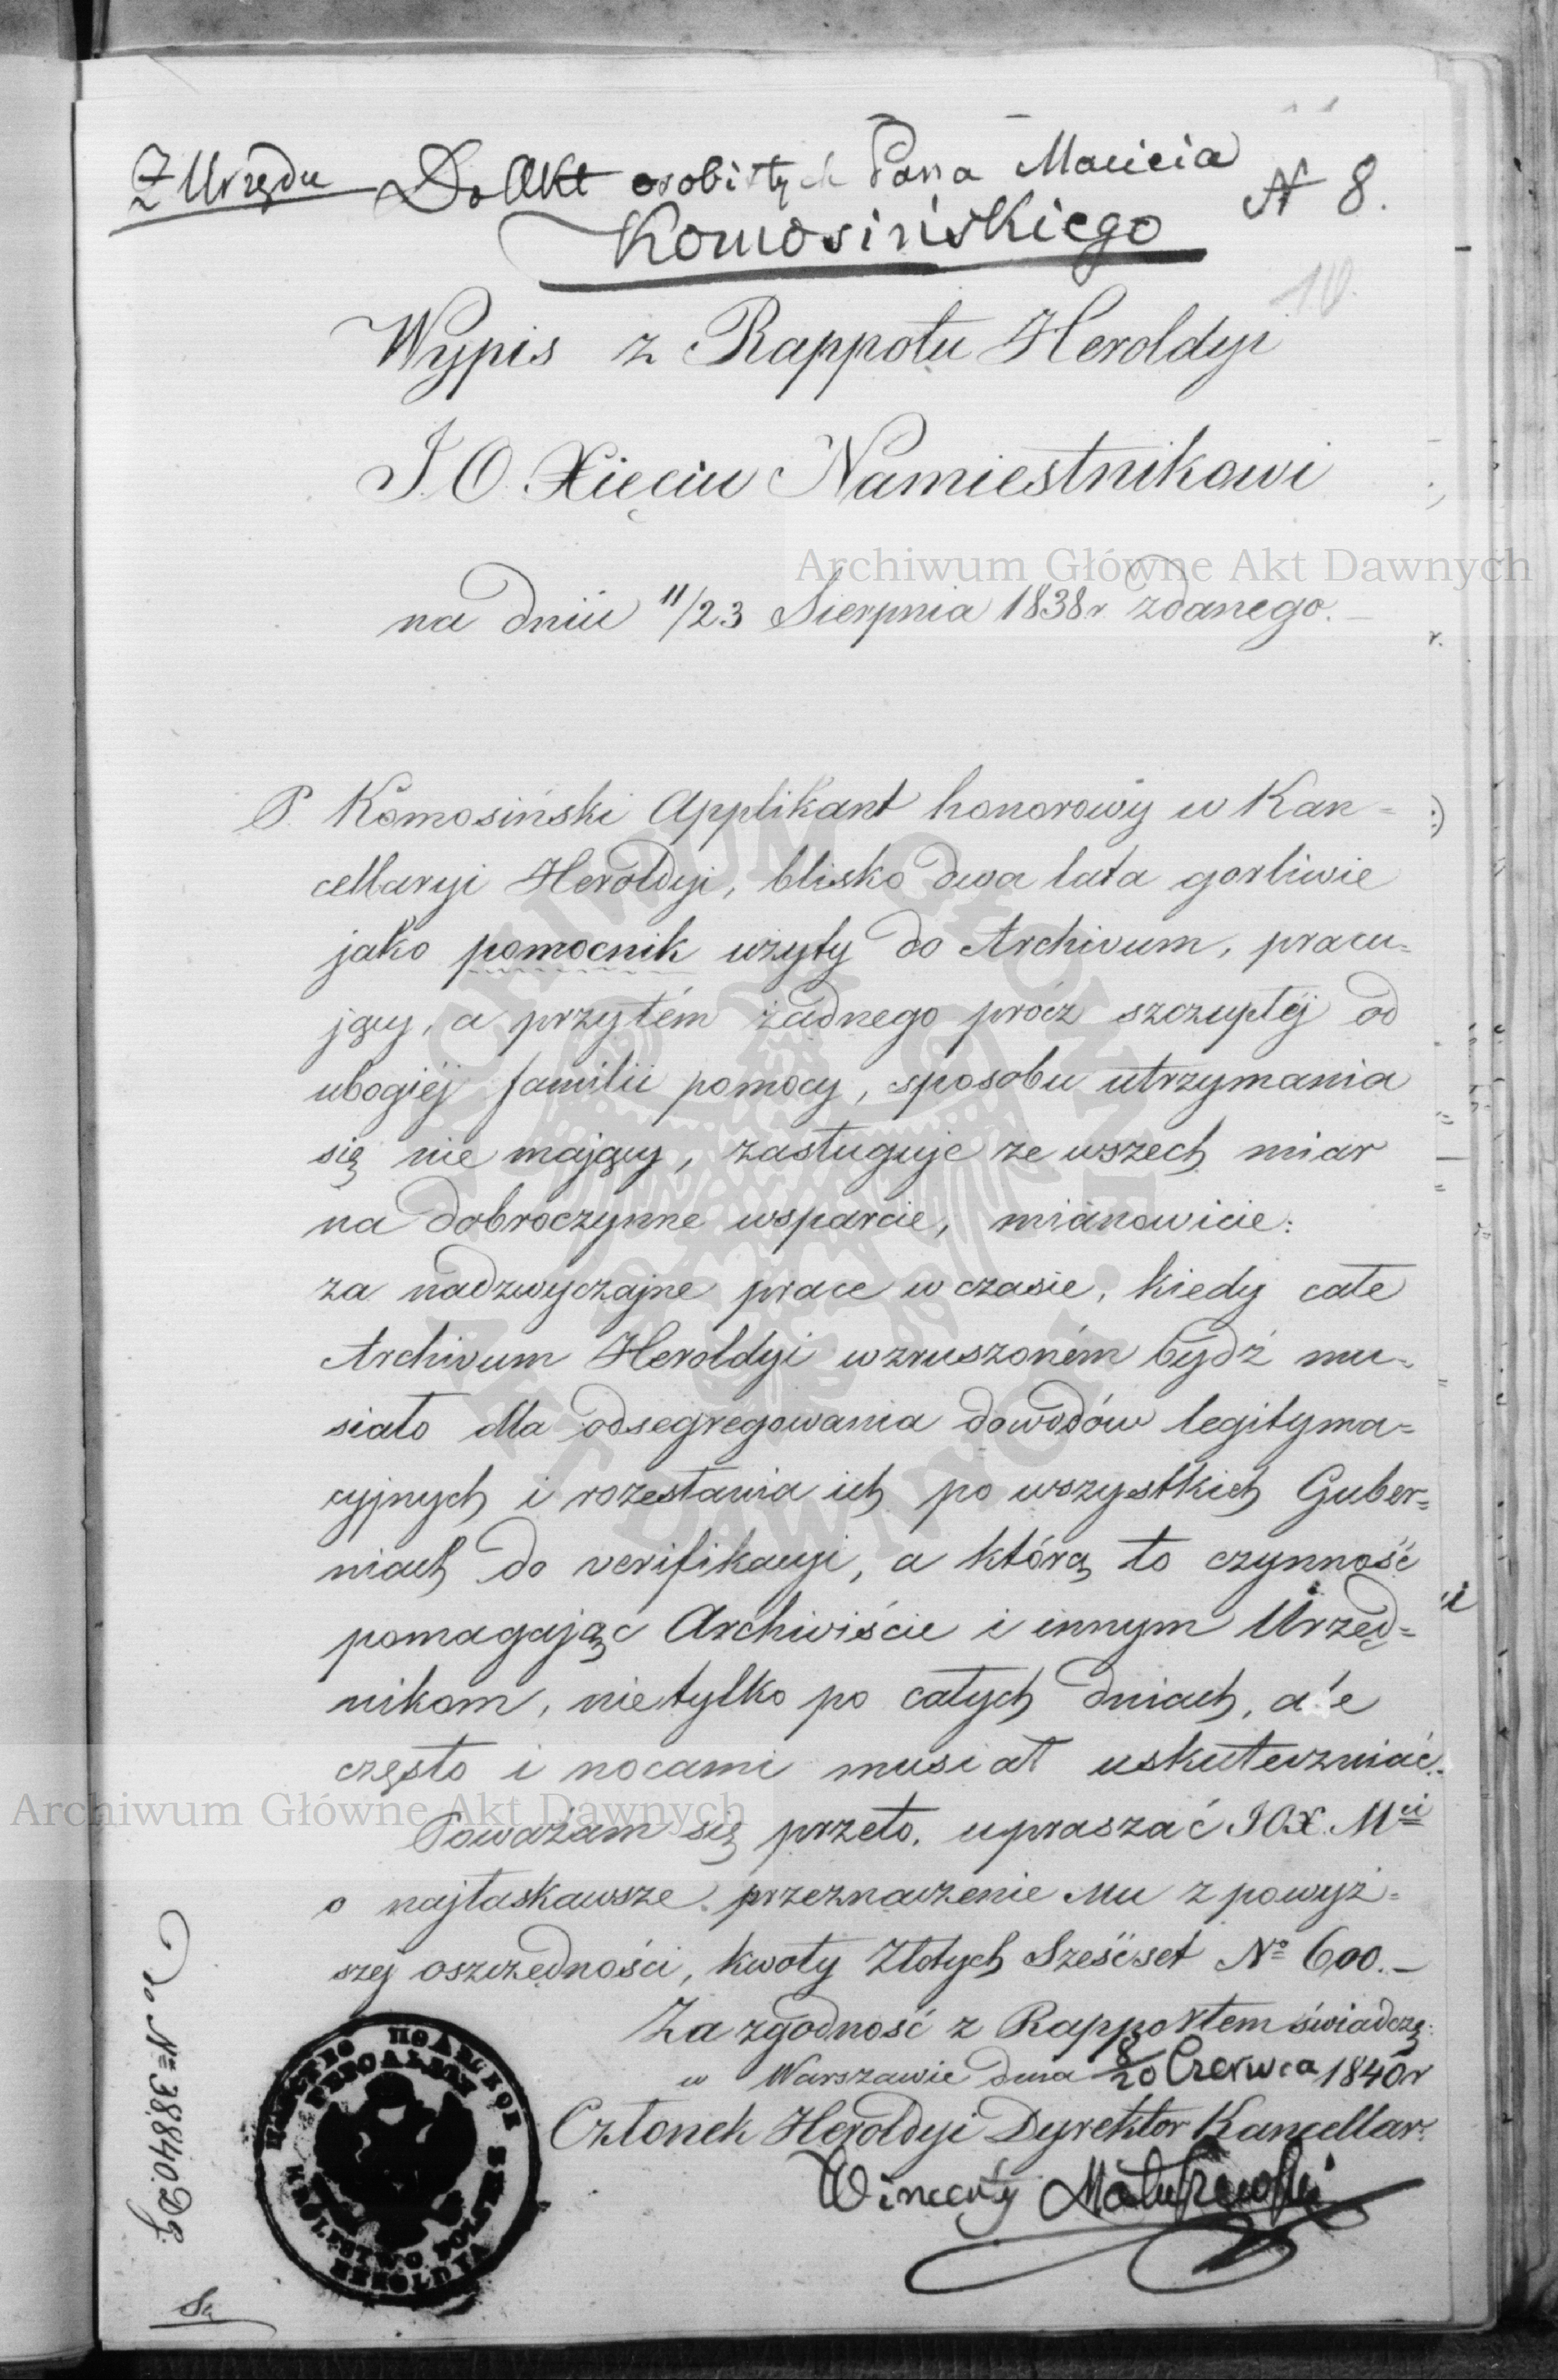 Z Urzędu
Do Akt osobistych Pana Macieia
N 8.
Komosińskiego
10.
Wypis z Rappotu Heroldyi
J. O. Xięciu Namiestnikowi
na dniu 11/23 Sierpnia 1838 r zdanego.
P. Komosiński Applikant honorowy w Kan=
cellaryi Heroldyi, blisko dwa lata gorliwie
jako pomocnik użyty do Archivum, pracu=
jący, a przytém żadnego prócz szczupłéj od
ubogiéj familii pomocy, sposobu utrzymania
się nie mający, zasługuje ze wszech miar
na dobroczynne wsparcie, mianowicie:
za nadzwyczajne prace w czasie, kiedy całe
Archivum Heroldyi wzruszoném bydź mu=
siało dla odsegregowania dowodów legityma=
cyjnych i rozesłania ich po wszystkich Guber=
niach do verifikacyi, a którą to czynność
pomagając Archiwiście i innym Urzęd=
nikom, nie tylko po całych dniach, ale
często i nocami musiał uskuteczniać.
Poważam się przeto, upraszać JOX. Mci
o najłaskawsze przeznaczenie Mu z powyż=
szej oszczędności, kwoty Złotych Sześćset No 600.—
Za zgodność z Rapportem świadczę:
w Warszawie dnia 8/20 Czerwca 1840 r
Członek Heroldyi Dyrektor Kancellar.
Wincenty Matuszewski
Do No 38840. Dg.
Archiwum Główne Akt Dawnych
Archiwum Główne Akt Dawnych
ARCHIWUM GŁÓWNE AKT DAWNYCH